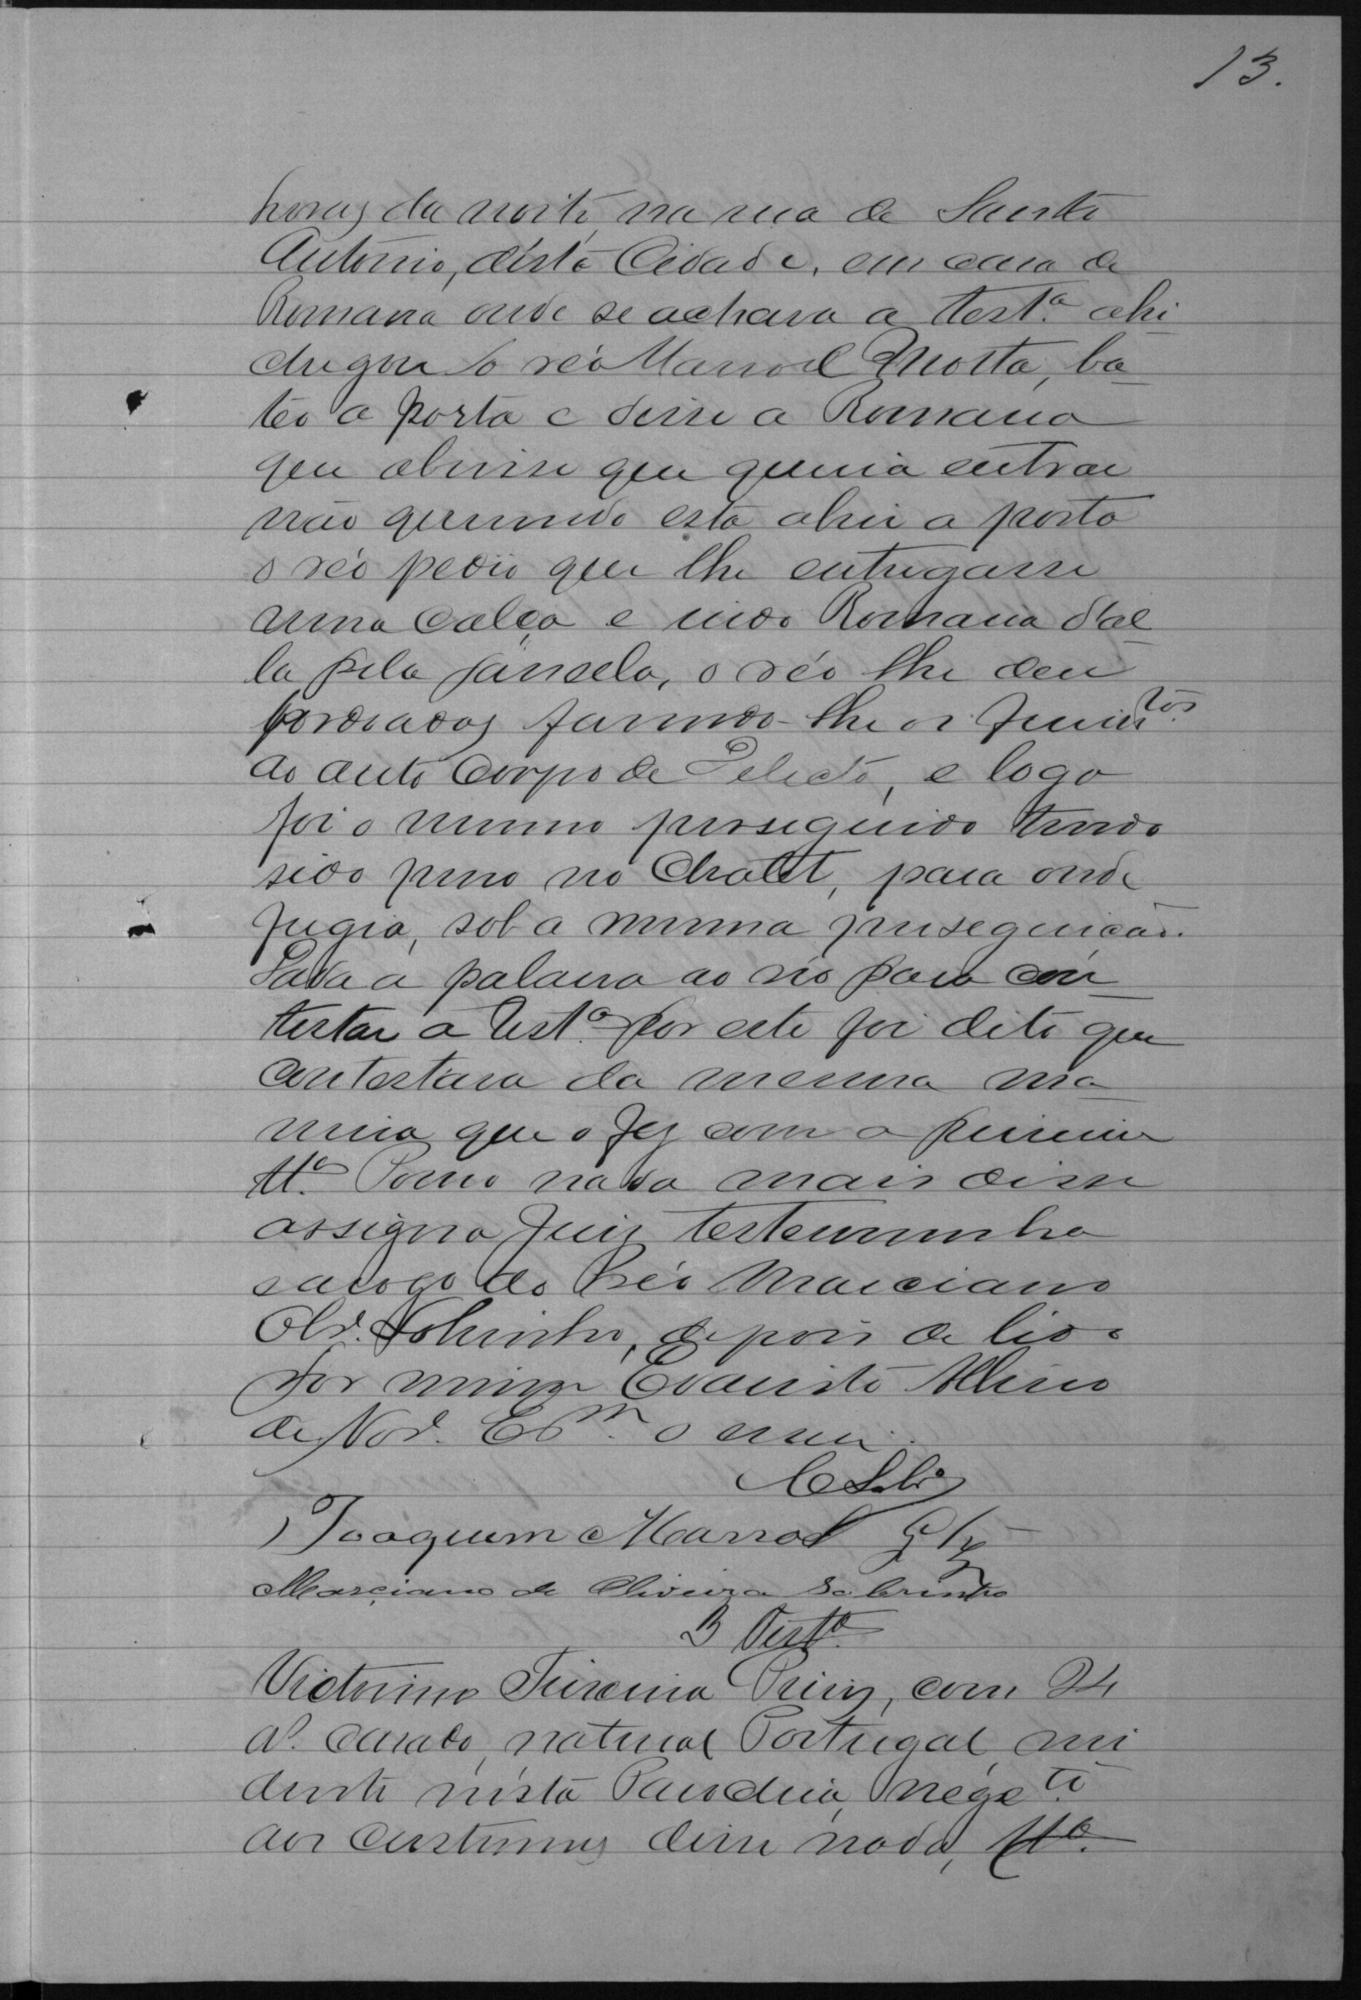 13.
horas da noite, na rua de Santo
Antonio, desta Cidade, em casa de
Romana onde se achava a test.ª ahi
chegou o réo Manoel Motta, ba-
teo a porta e disse a Romana
que abrisse que queria entrar
não querendo esta abrir a porta
o réo pedio que lhe entregasse
uma calça e indo Romana dal-
la pela janella, o réo lhe deu
pordoadas fasendo-lhe os ferimtos.
do auto Corpo de Delicto, e logo
foi o mesmo perseguido tendo
sido preso no Chalet, para onde
fugio, sob a mesma perseguição.
Dada a palavra ao réo para con-
testar a test.ª por este foi dito que
contestava da mesma ma-
neira que o fez com a primeira
tt.ª Como nada mais disse
assigna Juiz testemunha
e a rogo do réo Marciano
Olv.ª Sobrinho, depois de lido
por mim Evaristo
de Esm. o escrevi.
Joaquim Manoel
Marciano de Oliveira Sobrinho
3 Test.ª
Victorino Teixeira com 24
a.s casado, natural Portugal, resi-
dente nesta Parochia, negte.
aos custumes disse nada, tt.ª